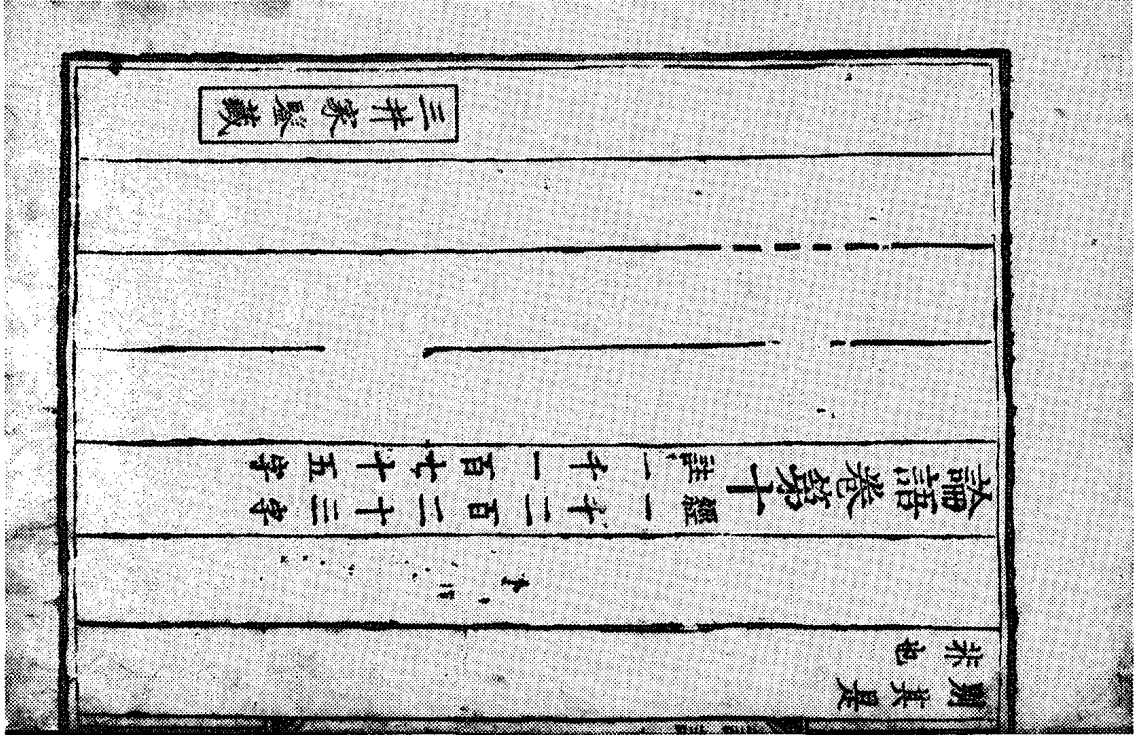 別其是
非也
論語卷第十
經一千二百二十三字
註一千一百七十五字
三井家鑒藏